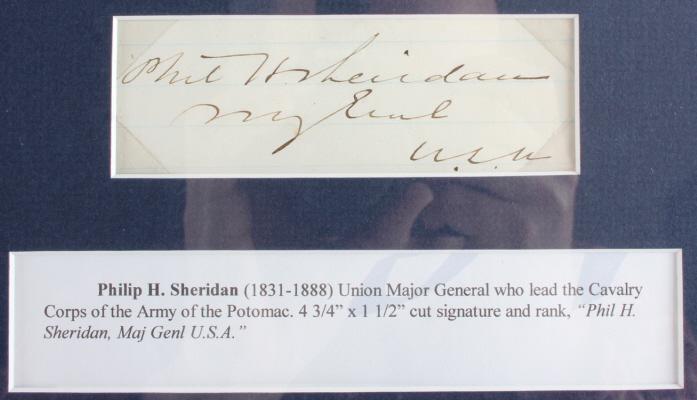 Phil H. Sheridan
Maj Genl
U.S.A
Philip H. Sheridan (1831-1888) Union Major General who lead the Cavalry
Corps of the Army of the Potomac. 4 3/4” x 1 1/2” cut signature and rank, “Phil H.
Sheridan, Maj Genl U.S.A.”